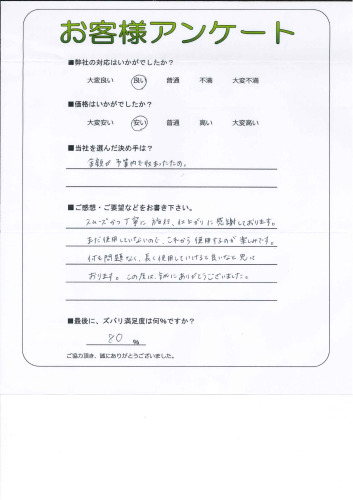 お客様アンケート
■弊社の対応はいかがでしたか？
大変良い 良い 普通 不満 大変不満
■価格はいかがでしたか？
大変安い 安い 普通 高い 大変高い
■当社を選んだ決め手は？
金額が予算内で収まったため。
■ご感想・ご要望などをお書き下さい。
スムーズかつ丁寧に 仕上がりに感謝しております。
まだ使用していないので、これから使用するのが楽しみです。
何も問題なく、長く使用していけると良いなと思って
おります。この度は、誠にありがとうございました。
■最後に、ズバリ満足度は何％ですか？
80 %
ご協力頂き、誠にありがとうございました。